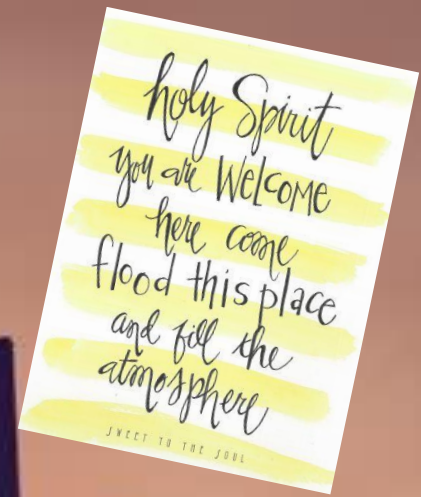 holy Spirit
you are WELCOME
here come
flood this place
and fill the
atmosphere
SWEET TO THE SOUL